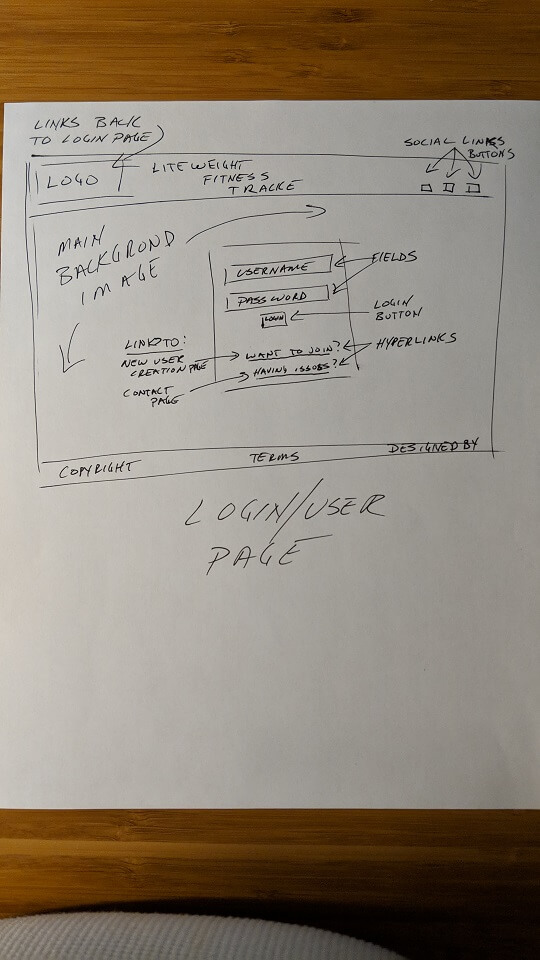 LINKS BACK
TO LOGIN PAGE
SOCIAL LINKS
BUTTONS
LOGO
LITEWEIGHT
FITNESS
TRACKE
MAIN
BACKGROND
IMAGE
USERNAME
FIELDS
PASSWORD
LOGIN
LOGIN
BUTTON
LINK TO:
NEW USER
CREATION PAGE
WANT TO JOIN?
HYPERLINKS
HAVING ISSUES?
CONTACT
PAGE
COPYRIGHT
TERMS
DESIGNED BY
LOGIN/USER
PAGE